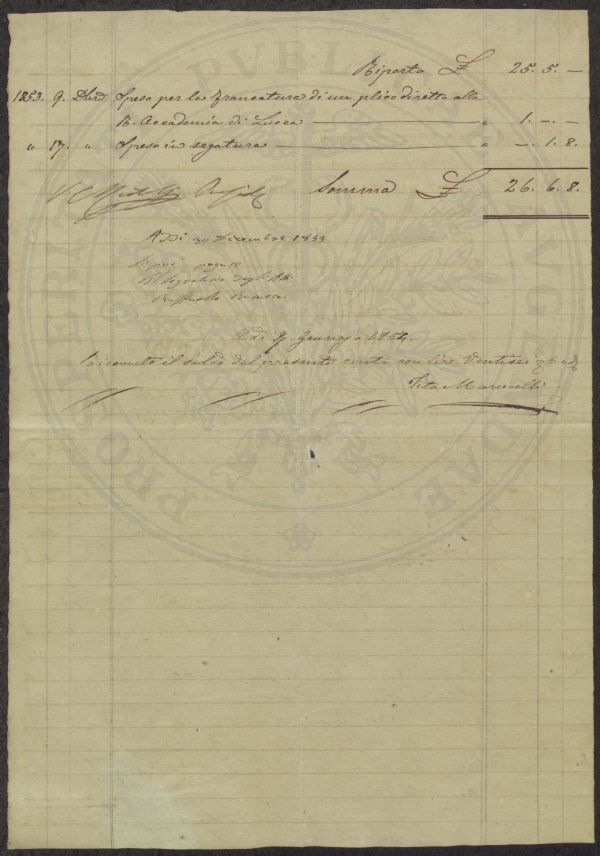 Riporto £ 25. 5. —
1853. 9. Dbre Spese per la francatura di un plico diretto alla
R. Accademia di Lucca — " 1. —. —
" 17. " Spese in segatura — " —. 1. 8.
Somma £ 26. 6. 8.
A Dì 30 Dicembre 1853
Si può pagare
Il Segretario degli Atti
Raffaello
A dì 9. Gennajo 1854.
Ricevuto il saldo del presente conto con lire Ventisei
Tito Marucelli
PVBLICAE
PROSPERITATI AVGENDAE